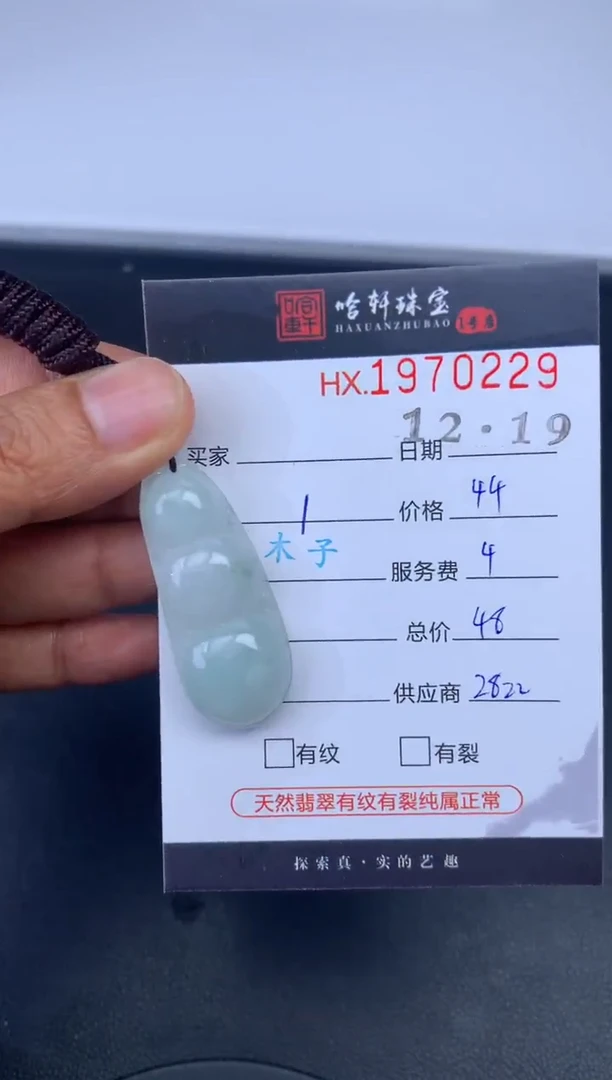 哈轩珠宝
HAXUANZHUBAO 1号店
HX.1970229
12·19
买家 日期
1 价格 44
木子
服务费 4
总价 48
供应商 2822
有纹 有裂
天然翡翠有纹有裂纯属正常
探索真·实的艺趣